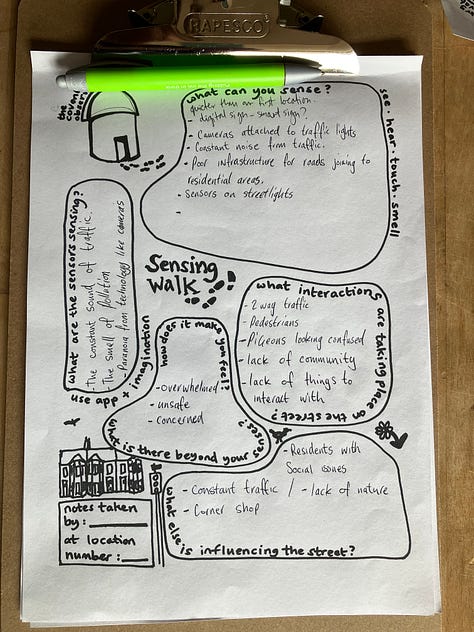 HAPESCO
the
what can you sense?
quieter than on first location.
- digital sign - smart sign?
- Cameras attached to traffic lights
- Constant noise from traffic.
- Poor infrastructure for roads joining to
residential areas.
- Sensors on streetlights
-
see · hear · touch · smell
what are the sensors sensing?
- The constant sound of traffic.
- The smell of pollution
- Paranoia from technology like cameras
use app + imagination
Sensing
walk
how does it make you feel?
- overwhelmed
- unsafe
- concerned
what is there beyond your senses?
what interactions
are taking place on the street?
- 2 way traffic
- Pedestrians
- Pigeons looking confused
- lack of community
- lack of things to
interact with
- Residents with
Social issues
- Constant traffic / - lack of nature
- Corner shop
what else is influencing the street?
notes taken
by:
at location
number: